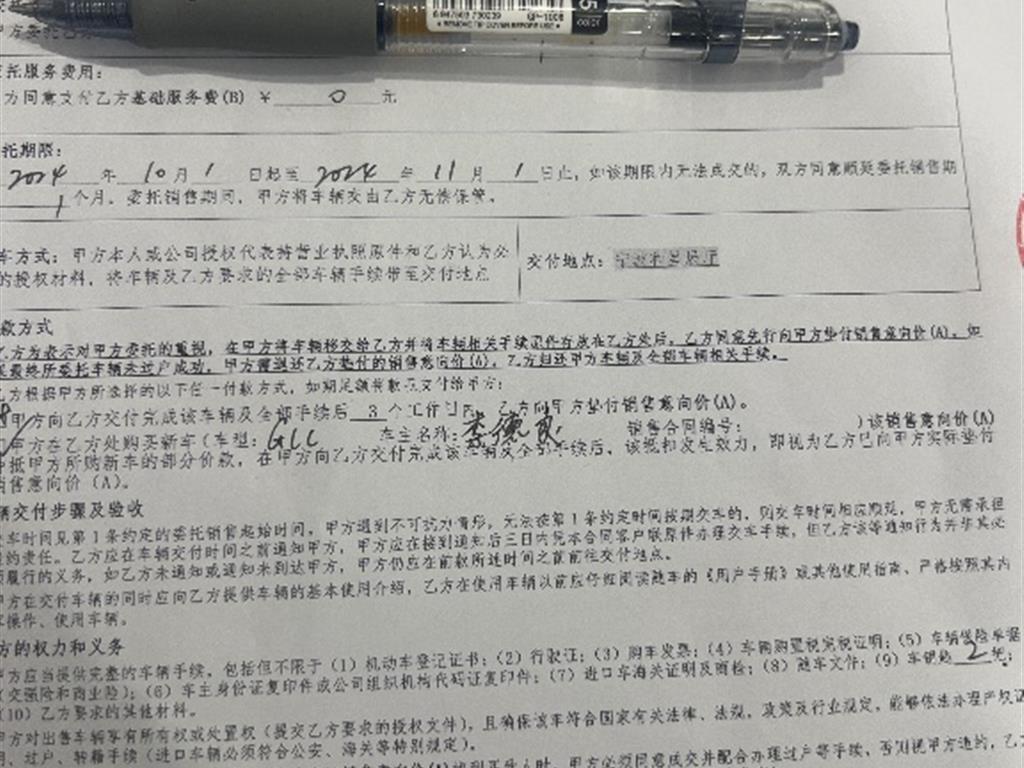 6947503 730239 GP-1008
REMOVE TIP COVER BEFORE USE
5
COLOR
甲方委托乙
托服务费用：
方同意支付乙方基础服务费(B) ¥ 0 元
托期限：
2024 年 10 月 1 日起至 2024 年 11 月 1 日止，如该期限内无法成交的，双方同意顺延委托销售期
1 个月。委托销售期间，甲方将车辆交由乙方无偿保管。
车方式：甲方本人或公司授权代表持营业执照原件和乙方认为必
的授权材料，将车辆及乙方要求的全部车辆手续带至交付地点
交付地点：
款方式
乙方为表示对甲方委托的重视，在甲方将车辆移交给乙方并将车辆相关手续原件存放在乙方处后，乙方同意先行向甲方垫付销售意向价(A)。如
最终所委托车辆未过户成功，甲方需退还乙方垫付的销售意向价(A)，乙方归还甲方车辆及全部车辆相关手续。
乙方根据甲方所选择的以下任一付款方式，如期足额将款项支付给甲方：
甲方向乙方交付完成该车辆及全部手续后 3 个工作日内，乙方向甲方垫付销售意向价(A)。
甲方在乙方处购买新车（车型：GLC 车主名称：李德良 销售合同编号： ）该销售意向价(A)
抵甲方所购新车的部分价款，在甲方向乙方交付完成该车辆及全部手续后，该抵扣发生效力，即视为乙方已向甲方实际垫付
销售意向价（A）。
辆交付步骤及验收
交车时间见第1条约定的委托销售起始时间，甲方遇到不可抗力情形，无法按第1条约定时间按期交车的，则交车时间相应顺延，甲方无需承担
约责任。乙方应在车辆交付时间之前通知甲方，甲方应在接到通知后三日内凭本合同客户联原件办理交车手续，但乙方该等通知行为并非其必
须履行的义务，如乙方未通知或通知未到达甲方，甲方仍应在前款所述时间之前前往交付地点。
甲方在交付车辆的同时应向乙方提供车辆的基本使用介绍，乙方在使用车辆以前应仔细阅读随车的《用户手册》或其他使用指南、严格按照其内
容操作、使用车辆。
方的权力和义务
甲方应当提供完整的车辆手续，包括但不限于（1）机动车登记证书；（2）行驶证；（3）购车发票；（4）车辆购置税完税证明；（5）车辆保险单据
（交强险和商业险）；（6）车主身份证复印件或公司组织机构代码证复印件；（7）进口车海关证明及商检；（8）随车文件；（9）车钥匙 2 把；
（10）乙方要求的其他材料。
甲方对出售车辆享有所有权或处置权（提交乙方要求的授权文件），且确保该车符合国家有关法律、法规、政策及行业规定，能够依法办理产权证
明、过户、转籍手续（进口车辆必须符合公安、海关等特别规定）。
时，甲方必须同意成交并配合办理过户等手续，否则视甲方违约，乙